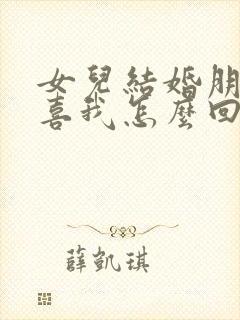 女兒結婚朋
喜我怎麼回
薛凱琪